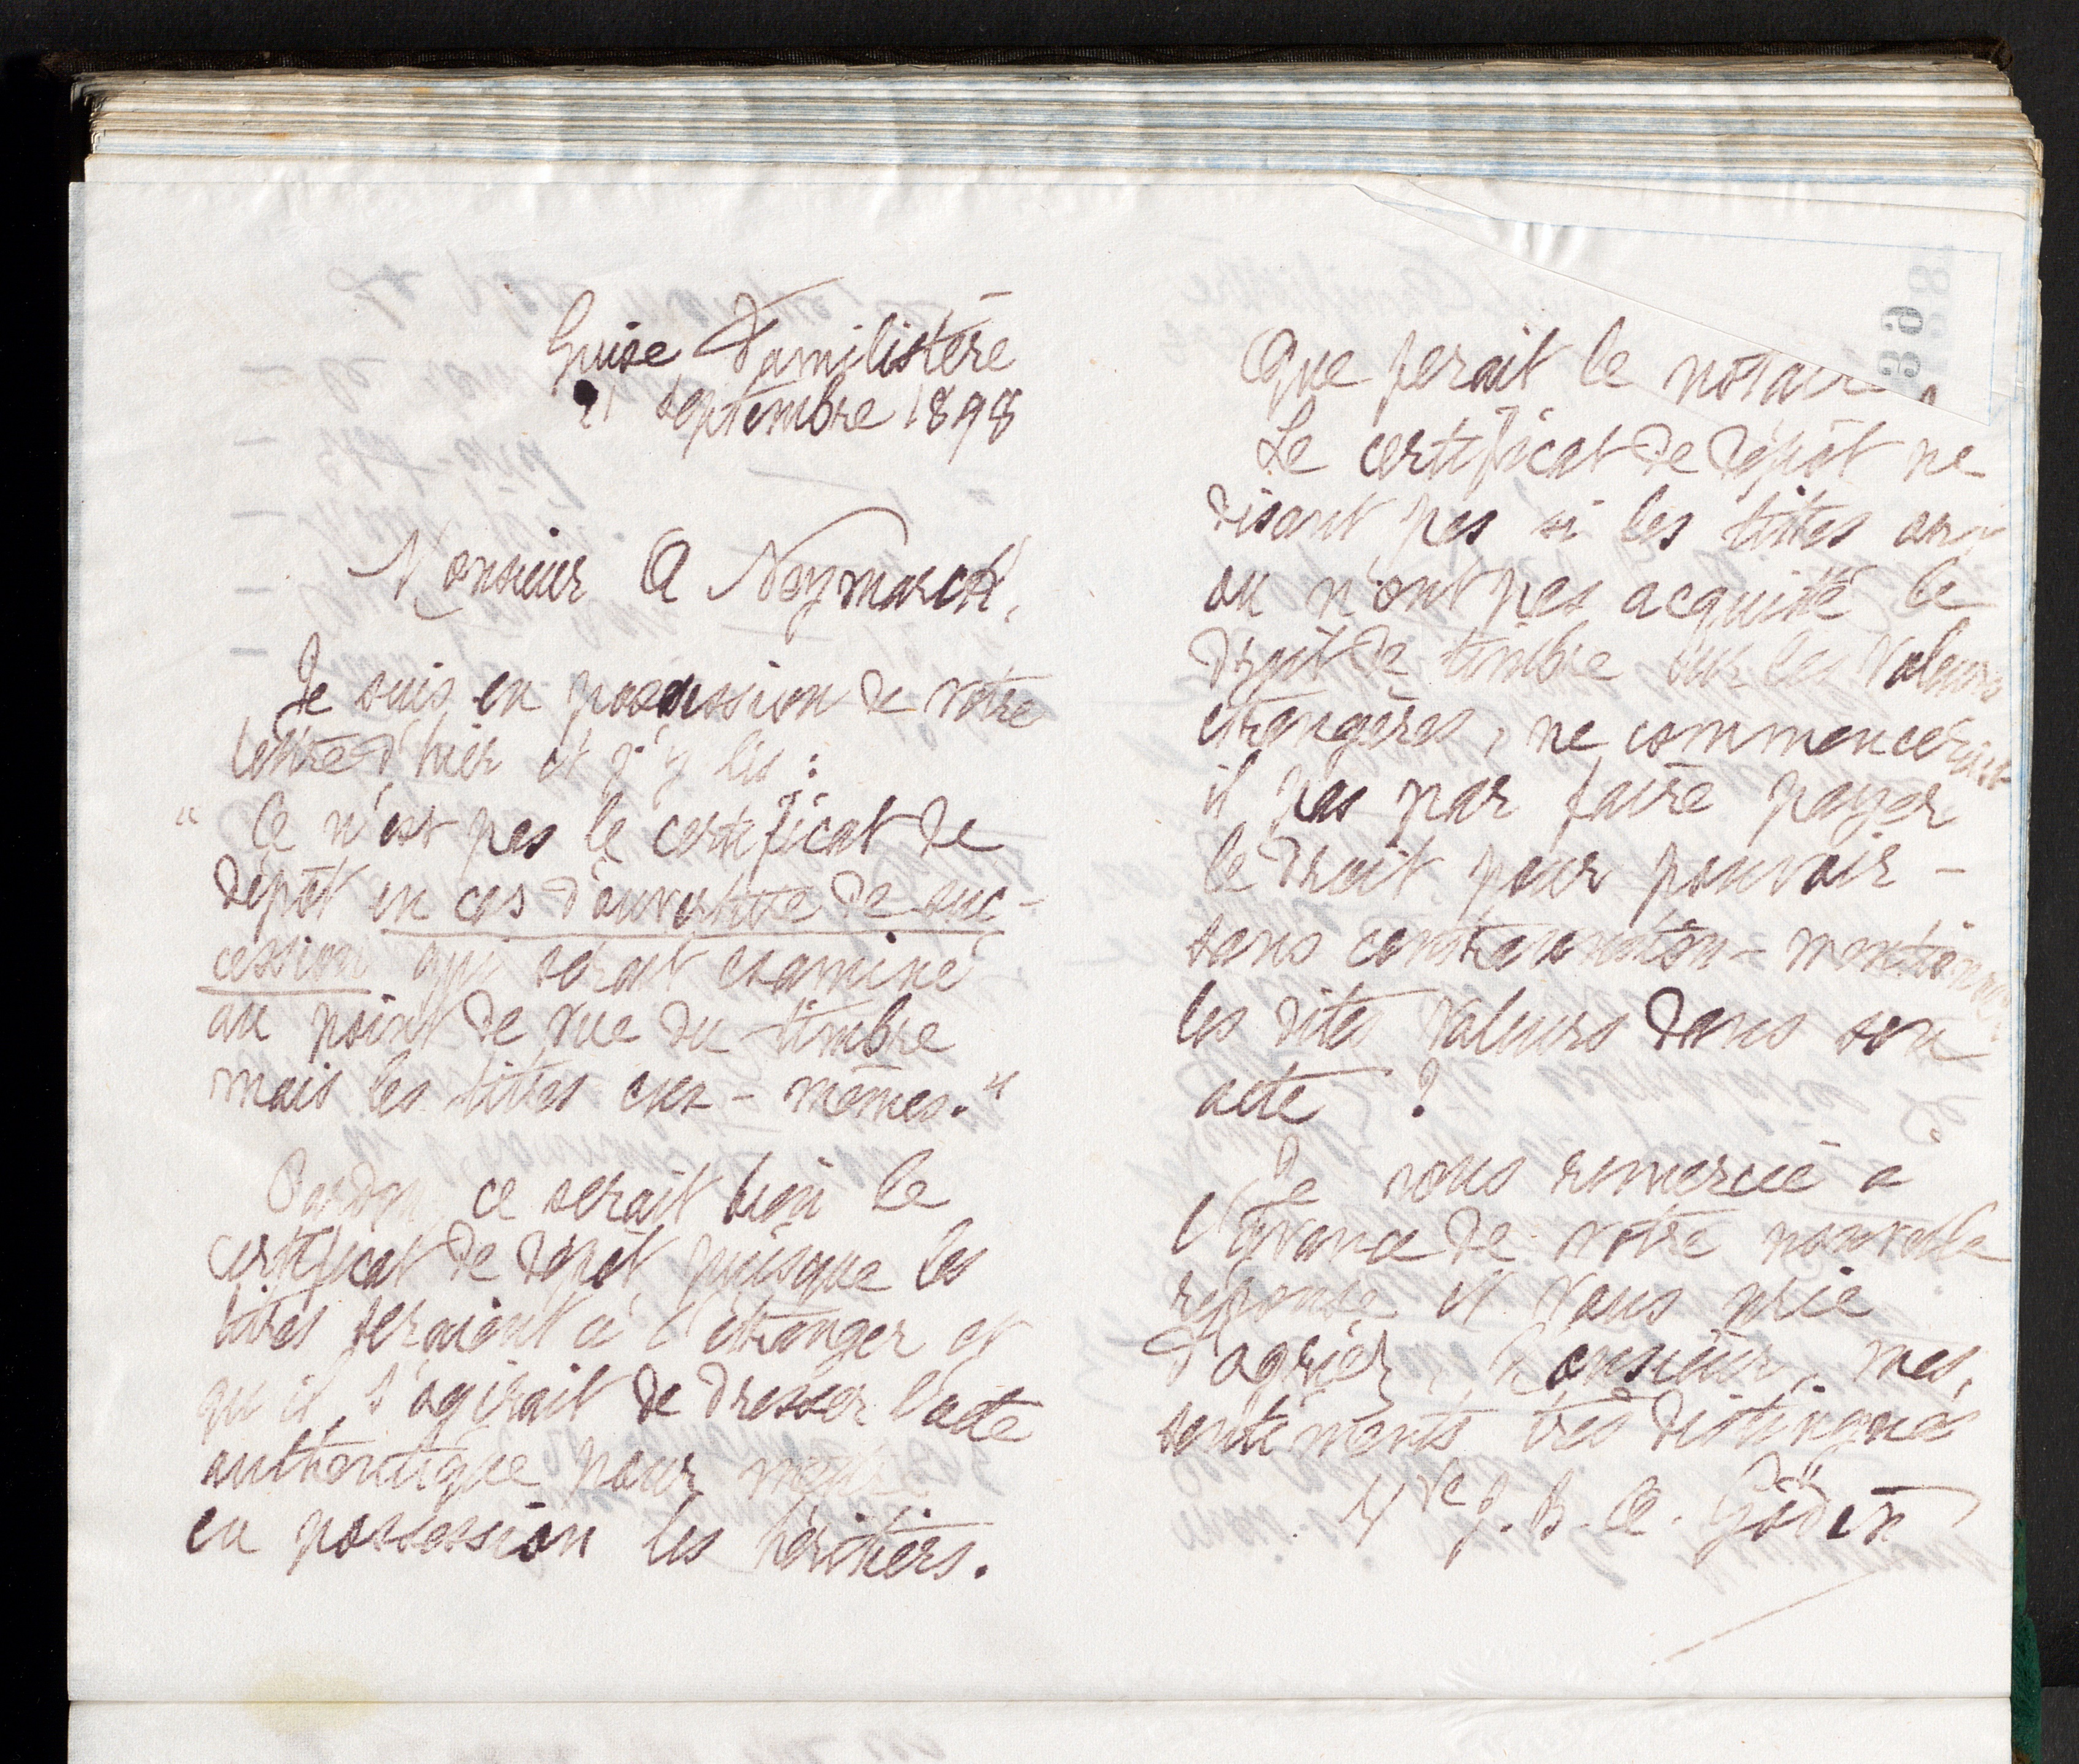 Guise Familistère
21 septembre 1898
Monsieur A Neymarck,
Je suis en possession de votre
lettre d'hier et j'y lis :
" Ce n'est pas le certificat de
dépôt en cas d'ouverture de suc-
cession qui serait examiné
au point de vue du timbre
mais les titres eux-mêmes."
Pardon, ce serait bien le
certificat de dépôt, puisque les
titres seraient à l'étranger et
qu'il s'agirait de dresser l'acte
authentique pour mettre
en possession les héritiers.
Que ferait le notaire
Le certificat de dépôt ne
disant pas si les titres ont
ou n'ont pas acquitté le
droit de timbre sur les valeurs
étrangères, ne commencerait
il pas par faire payer
le droit pour pouvoir -
sans contravention - mentionner
les dites valeurs dans son
acte ?
Je vous remercie à
l'avance de votre nouvelle
réponse et vous prie
d'agréer, Monsieur, mes
sentiments très distingués
Vve J. B. A. Godin